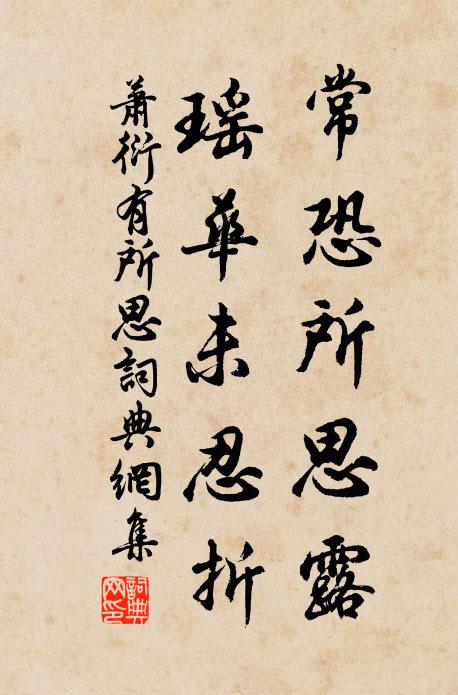 常恐所思露
瑶華未忍折
蕭衍有所思詞典網集
詞典
网印